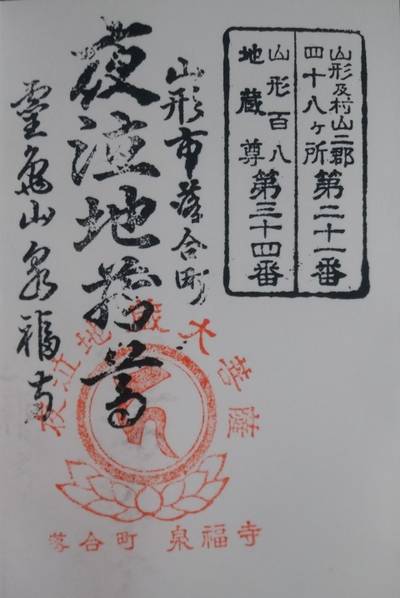 山形及村山二郡
四十八ヶ所第二十一番
山形百八
地蔵尊第三十四番
山形市落合町
夜泣地蔵尊
霊亀山泉福寺
夜泣地蔵大菩薩
落合町 泉福寺